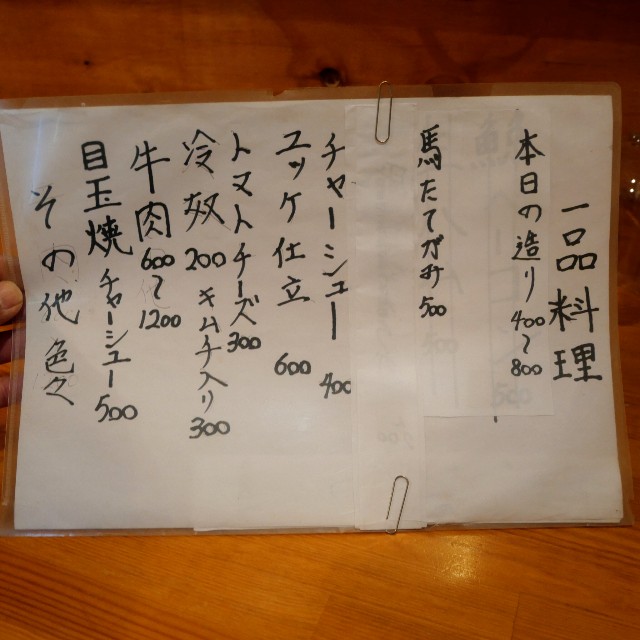 一品料理
本日の造り 400〜800
馬たてがみ 500
チャーシュー 400
ユッケ仕立 600
トマトチーズ 300
冷奴 200 キムチ入り 300
牛肉 600〜1200
目玉焼 チャーシュー 500
その他色々